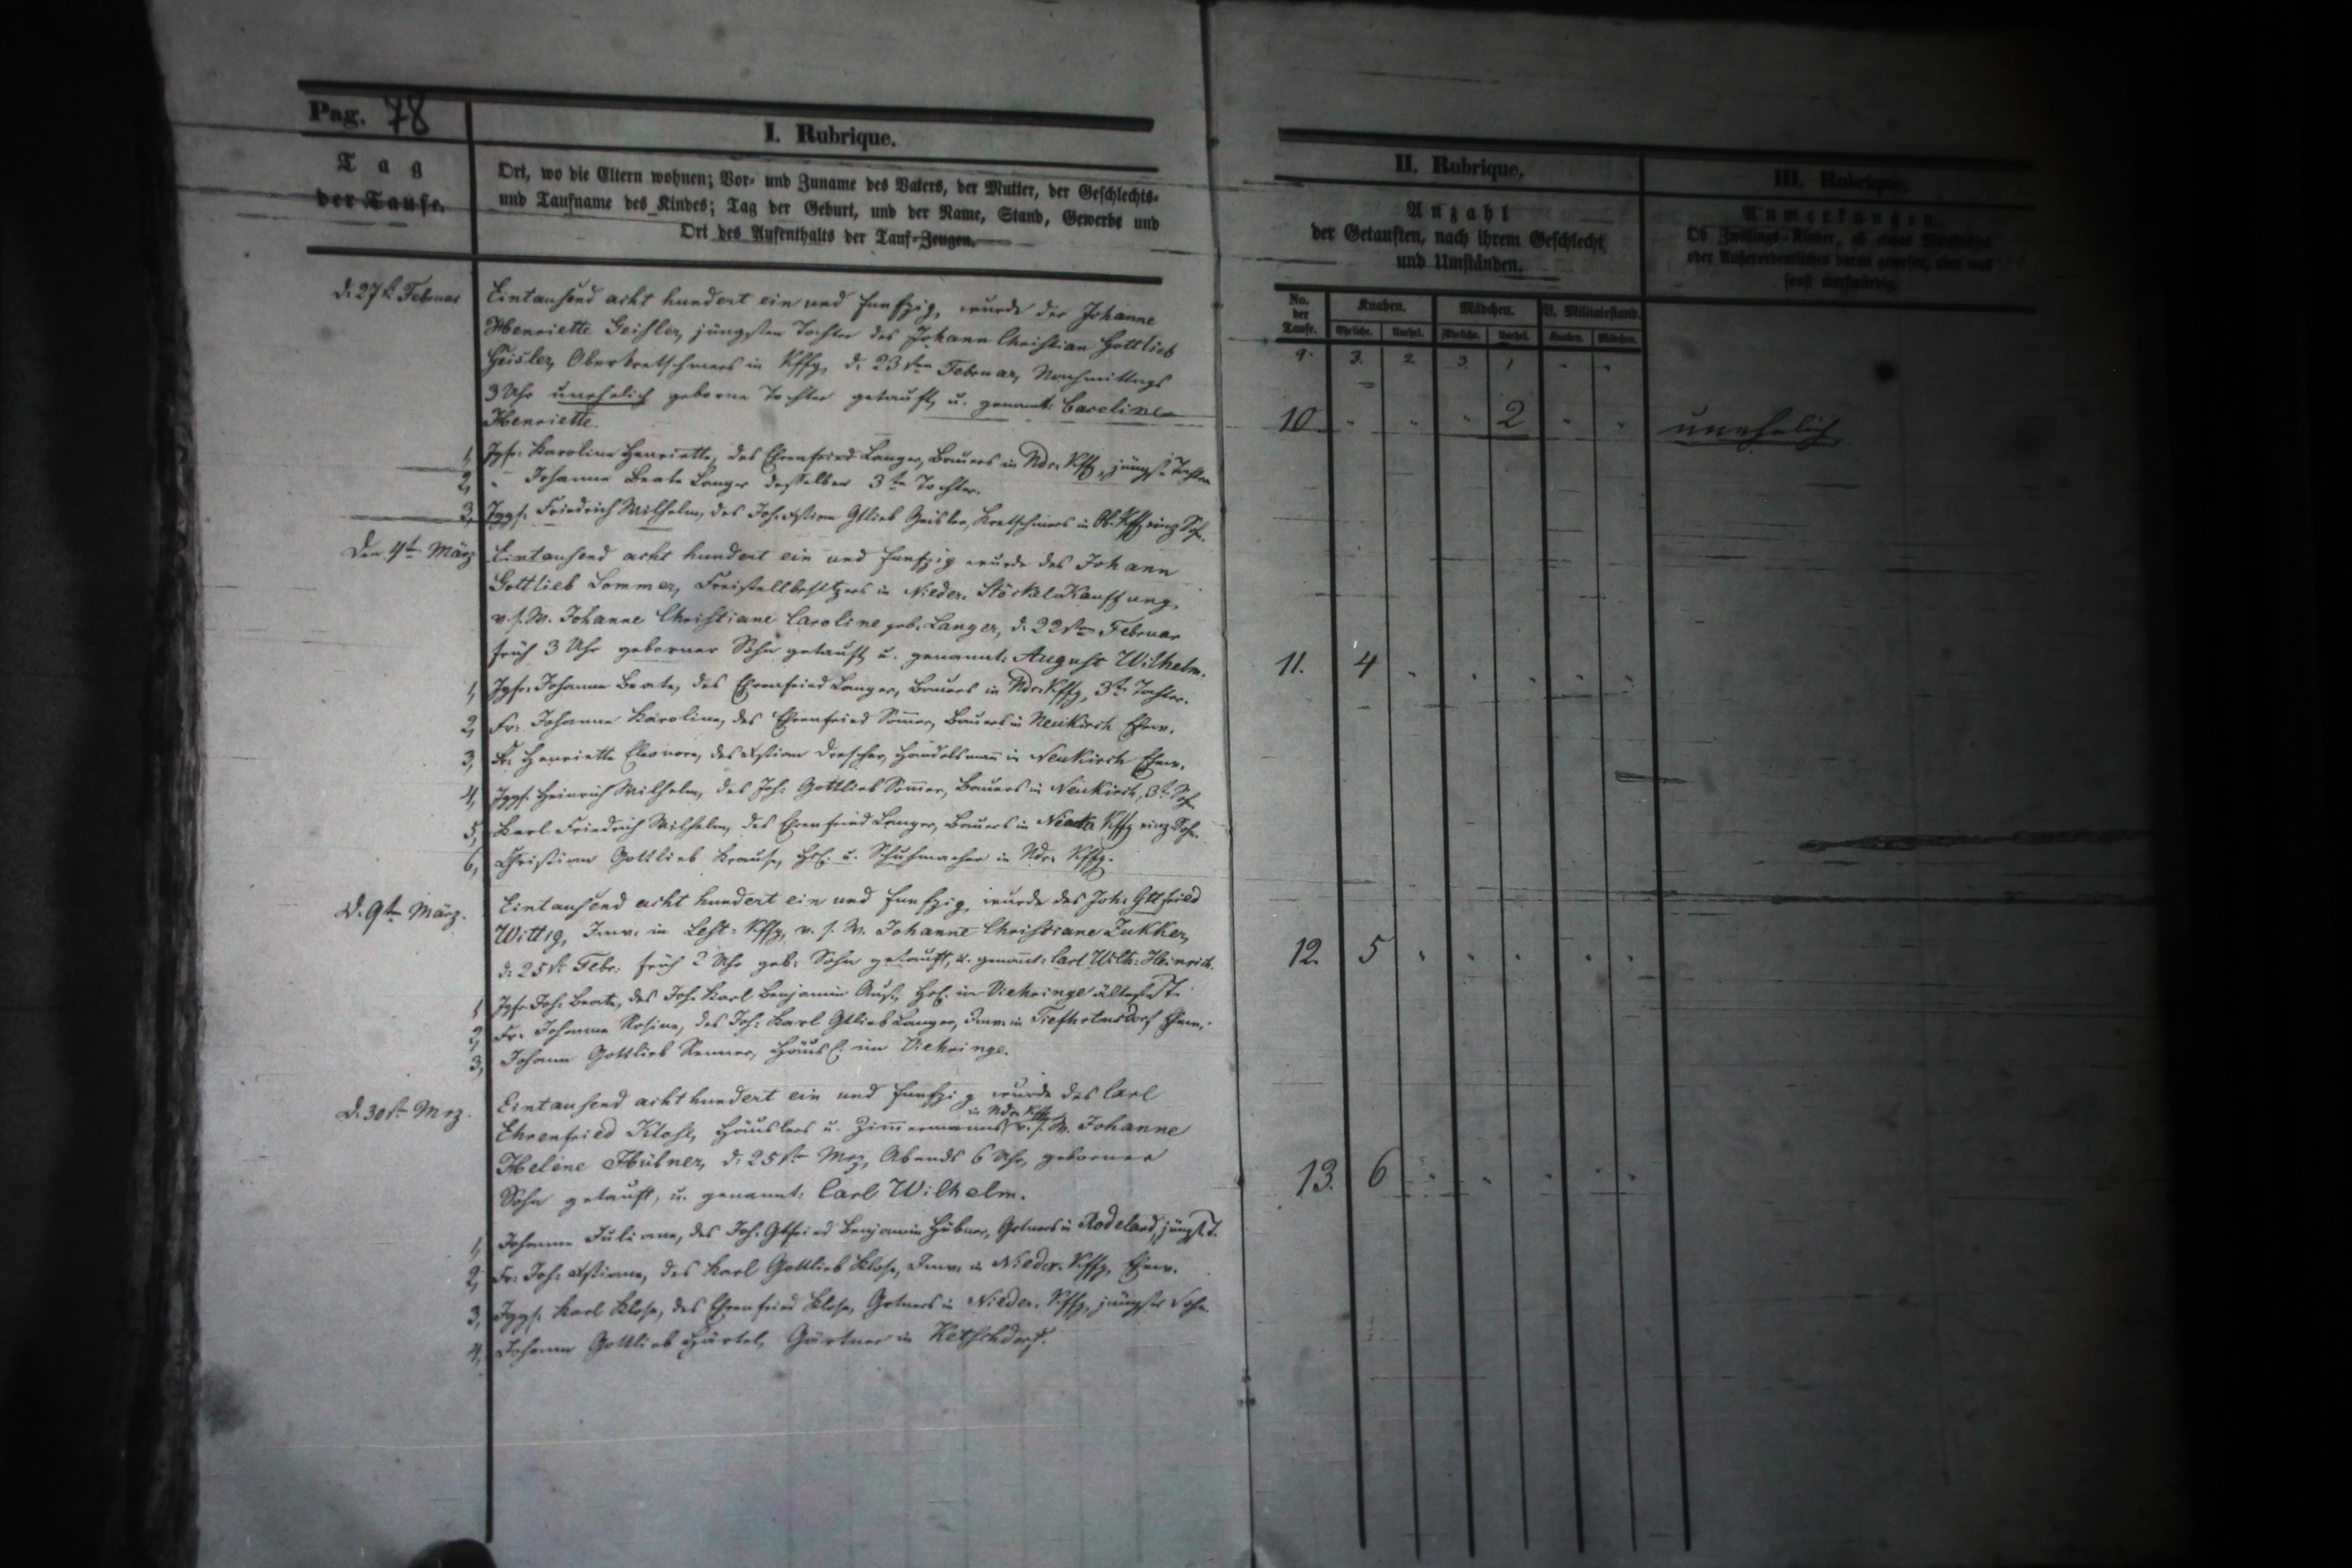 Pag. 78
I. Rubrique.
Tag
der Taufe.
Ort, wo die Eltern wohnen; Vor- und Zuname des Vaters, der Mutter, der Geschlechts-
und Taufname des Kindes; Tag der Geburt, und der Name, Stand, Gewerbe und
Ort des Aufenthalts der Tauf-Zeugen.
d. 27t. Februar Eintausend acht hundert ein und funfzig, wurde der Johanne
Henriette Geisler, jüngsten Tochter des Johann Christian Gottlieb
Geisler, Oberkretschmers in Kffg, d. 23sten Februar, Nachmittags
3 Uhr unehelich geborne Tochter getauft, u. genannt: Caroline
Henriette.
1, Jgfr. Karoline Henriette, des Ehrenfried Langer, Bauers in Ndr. Kffg, jüngste Tochter
2, " Johanne Beate Langer desselben 3te Tochter.
3, Jggs. Friedrich Wilhelm, des Joh. Xstian Gtlieb Geisler, Kretschmers in Ob. Kffg einz. Sohn.
Den 4t. März Eintausend acht hundert ein und funfzig wurde des Johann
Gottlieb Sommer, Freistellbesitzers in Nieder Stöckel Kauffung,
v. s. W. Johanne Christiane Caroline geb. Langer, d. 22sten Februar
früh 3 Uhr geborner Sohn getauft u. genannt: August Wilhelm.
1, Jgfr. Johanne Beate, des Ehrenfried Langer, Bauers in Ndr. Kffg, 3te Tochter.
2, Fr. Johanne Karoline, des Ehrenfried Sommer, Bauers in Neukirch Ehew.
3, Fr. Henriette Eleonore, des Xstian Drescher, Handelsmann in Neukirch Ehew.
4, Jggs. Heinrich Wilhelm, des Joh: Gottlieb Sommer, Bauers in Neukirch, 3t. Sohn
5, Karl Friedrich Wilhelm, des Ehrenfried Langer, Bauers in Kffg einz. Sohn.
6, Christian Gottlieb Krause, Hsl. u. Schuhmacher in Ndr. Kffg.
D. 9te März. Eintausend acht hundert ein und funfzig, wurde des Joh: Gttfried
Wittig, Inw. in Lest-Kffg, v. s. W. Johanne Christiane Zukker,
d. 25st. Febr: früh 2 Uhr geb. Sohn getauft, u. genannt: Carl Wilh: Heinrich.
1, Jgfr. Joh: Beate, des Joh. Karl Benjamin Aust, Hsl. im Viehringe älteste T.
2, Fr. Johanne Rosine, des Joh: Karl Gtlieb Langer, Inw. in Tiefhartmsdorf Ehew.
3, Johann Gottlieb Renner, Häusl. im Viehringe.
D. 30st. Mrz. Eintausend acht hundert ein und funfzig wurde des Carl
Ehrenfried Klose, Häuslers u. Zimmermanns in Ndr. Kffg v. s. W. Johanne
Helene Hübner, d. 25st. Mrz, Abends 6 Uhr, geborner
Sohn getauft, u. genannt: Carl Wilhelm.
1, Johanne Juliane, des Joh. Gtfried Benjamin Hübner, Grtners in Rodeland, jüngst. T.
2, Fr. Joh: Xstiane, des Karl Gottlieb Klose, Inw. in Nieder. Kffg, Ehew.
3, Jggs. Karl Klose, des Ehrenfried Klose, Grtners in Nieder. Kffg, jüngster Sohn
4, Johann Gottlieb Härtel, Gärtner in Ketschdorf.
II. Rubrique.
Anzahl
der Getauften, nach ihrem Geschlecht
und Umständen.
III. Rubrique.
Anmerkungen.
Ob Zwillings-Kinder, ob etwas
oder Außerordentliches daran gewesen, oder was
sonst merkwürdig.
No. der Taufe. Knaben. Mädchen. V. Militairstand.
Eheliche. Unehel. Eheliche. Unehel. Knaben. Mädchen.
9. 3. 2 3 1 " "
10. " " " 2 " " unehelich
11. 4 " " " " "
12. 5 " " " " "
13. 6 " " " " "